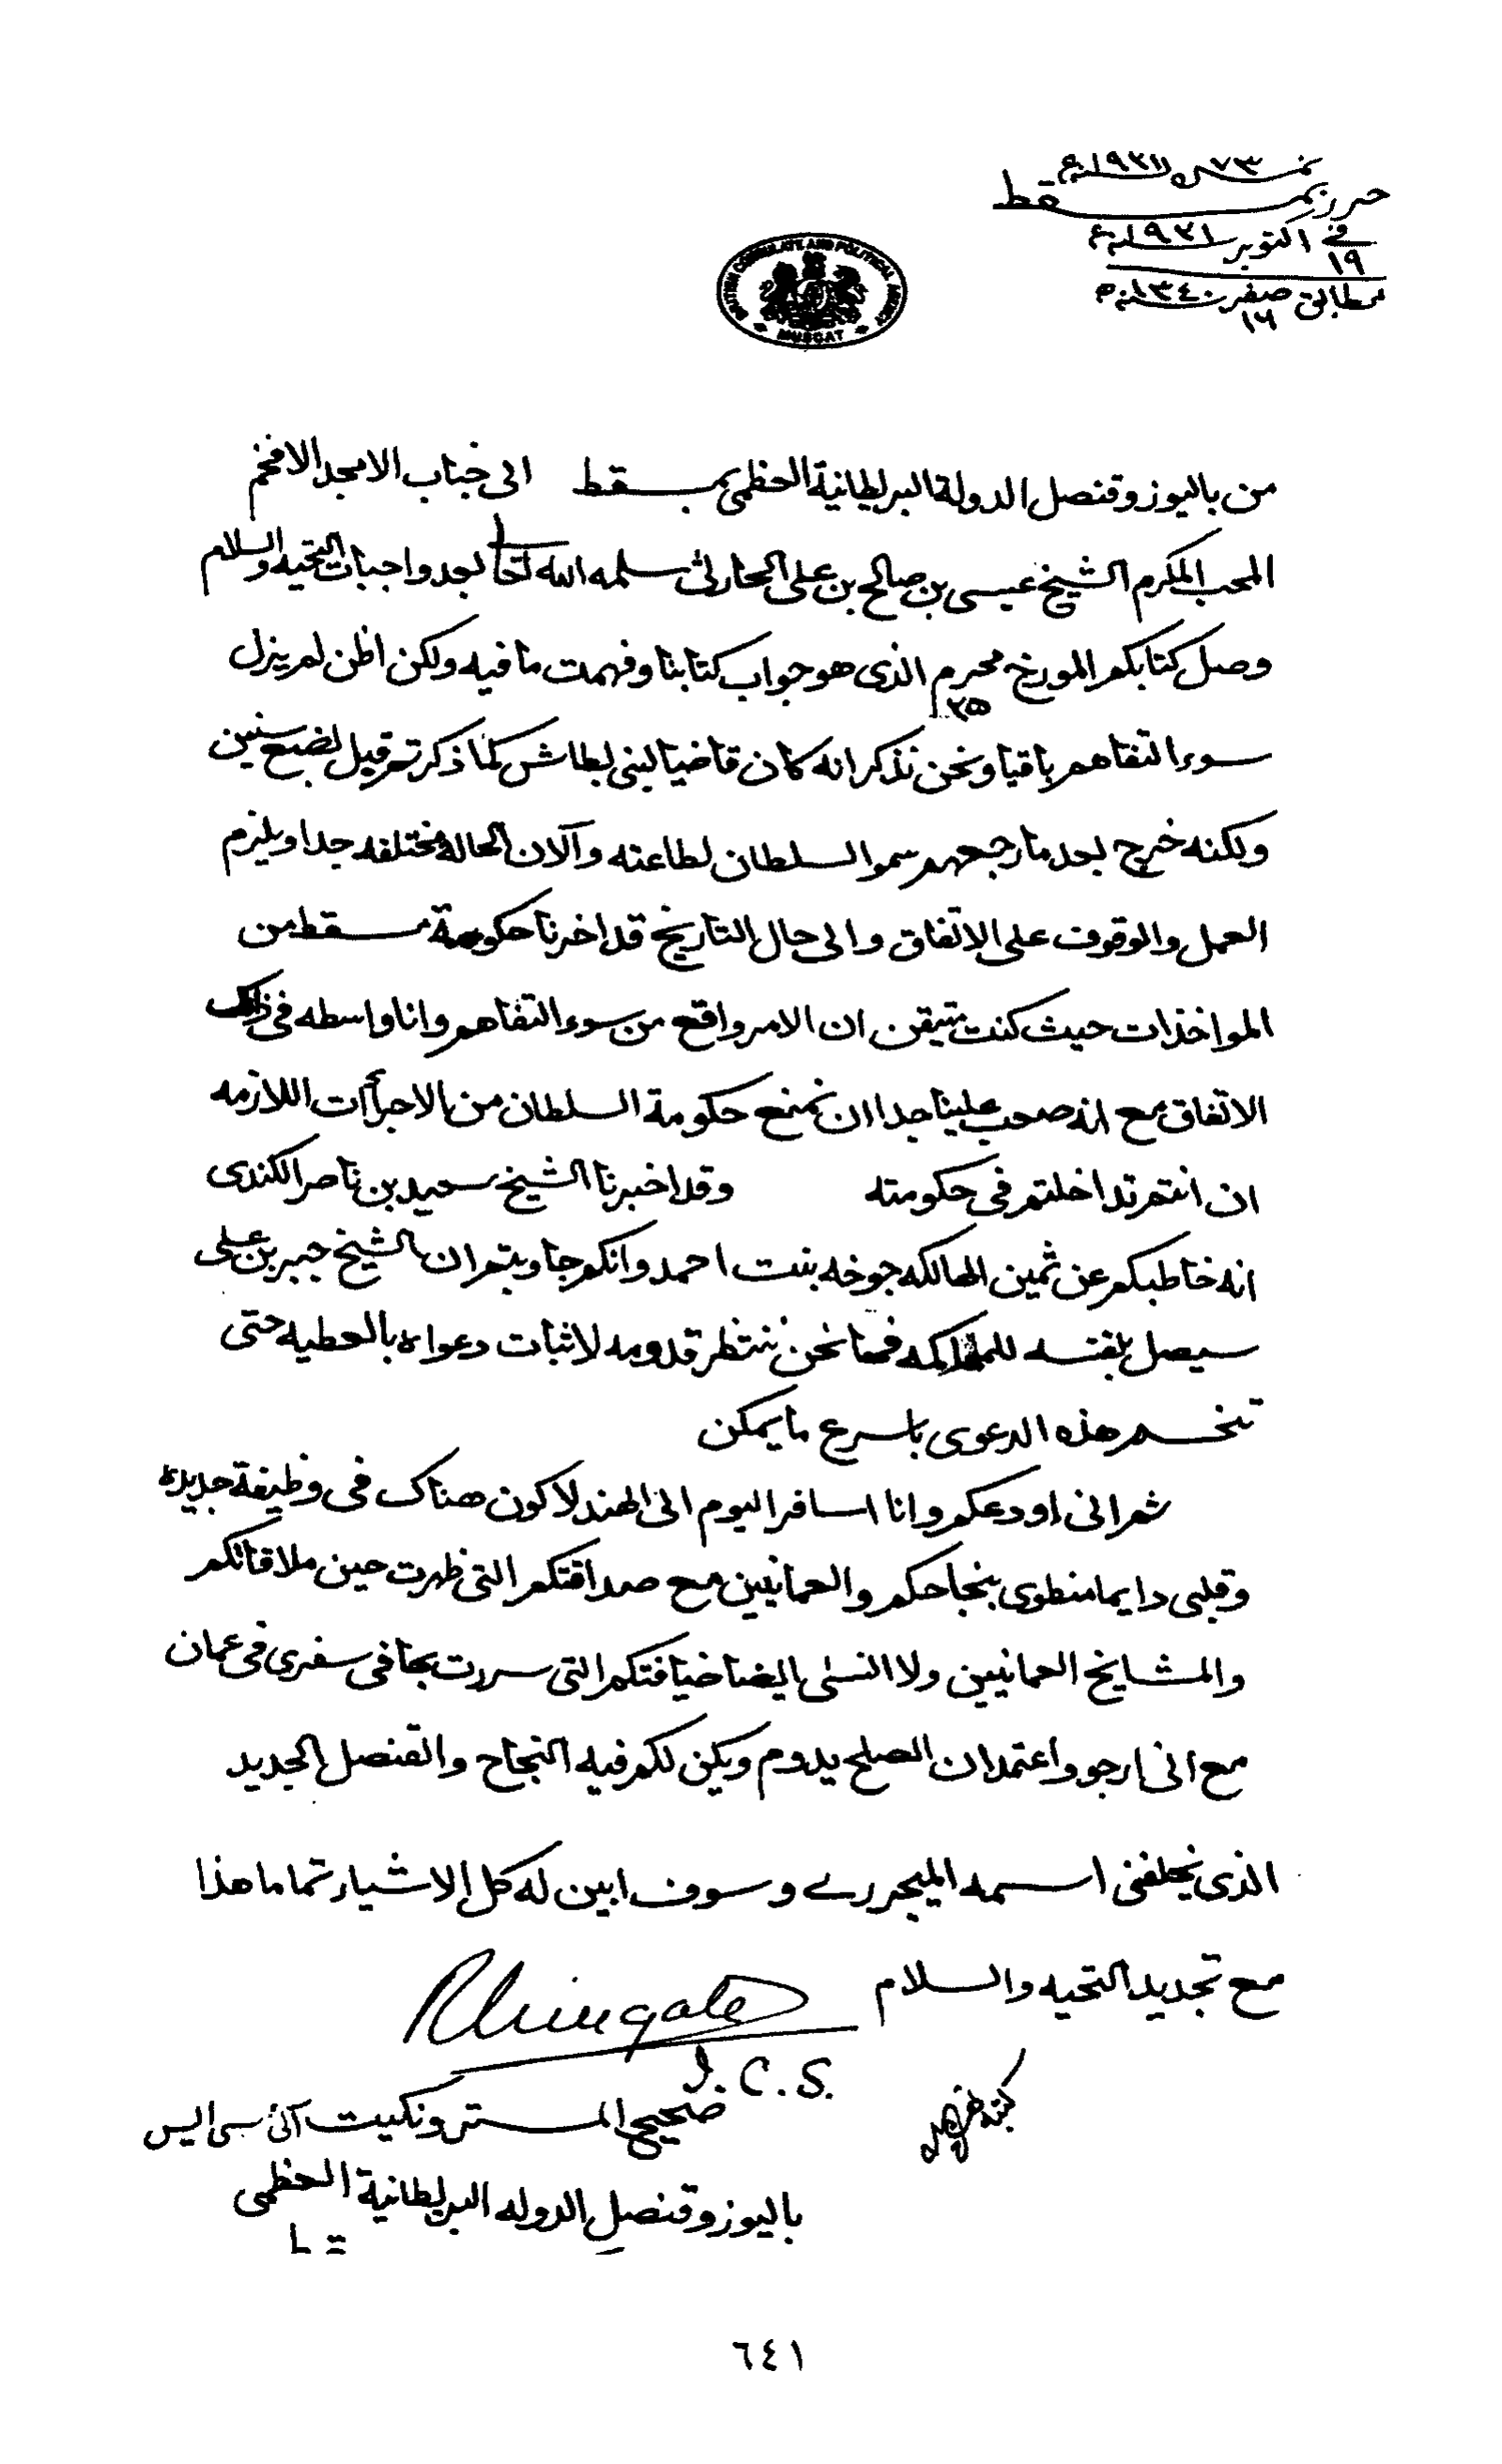 نمبر ٧٣ سنه ١٩٢١ع
حرر بمسقط
في ١٩ اكتوبر سنه ١٩٢١ع
مطابق ١٦ صفر سنه ١٣٤٠ه
BRITISH CONSULATE AND POLITICAL AGENCY
MUSCAT
من باليوز وقنصل الدولة البريطانية العظمى بمسقط الى جناب الامجد الافخم
المحب المكرم الشيخ عيسى بن صالح بن علي الحارثي سلمه الله تعالى بعد واجبات التحيه والسلام
وصل كتابكم المورخ ٢٥ محرم الذى هو جواب كتابنا وفهمت ما فيه ولكن اظن لم يزل
سوء التفاهم باقيا ونحن نذكر انه كان قاضيا لبنى بطاش كما ذكرتم قبل بضع سنين
ولكنه خرج بعد ما رجعهم سمو السلطان لطاعته والآن الحاله مختلفه جدا ويلزم
العمل والوقوف على الاتفاق والى حال التاريخ قد اخرنا حكومة مسقط من
المواخذات حيث كنت متيقن ان الامر واقع من سوء التفاهم وانا واسطه فى ذلك
الاتفاق مع انه صعب علينا جدا ان نمنع حكومة السلطان من الاجرأات اللازمه
ان انتم تداخلتم فى حكومته وقد اخبرنا الشيخ سعيد بن ناصر الكندى
انه خاطبكم عن ثمين الهالكه جوخه بنت احمد وانكم جاوبتم ان الشيخ جبر بن على
سيصل بنفسه للمحاكمه فها نحن ننتظر قدومه لاثبات دعواه بالعطيه حتى
تنحسم هذه الدعوى باسرع ما يمكن
ثم انى اودعكم وانا اسافر اليوم الى الهند لاكون هناك فى وظيفة جديده
وقلبى دايما منطوى بنجاحكم والعمانيين مع صداقتكم التى ظهرت حين ملاقاتكم
والمشايخ العمانيين ولا انسى ايضا ضيافتكم التى سررت بها فى سفرى فى عمان
مع انى ارجو واعتمد ان الصلح يدوم ويكن لكم فيه النجاح والقنصل الجديد
الذى يخلفنى اسمه الميجر رے وسوف ابين له كل الاشياء تماما هذا
مع تجديد التحيه والسلام
RWingate
I.C.S.
صحيح المستر ونكيت آئ سى ايس
باليوز وقنصل الدوله البريطانية العظمى
٦٤١